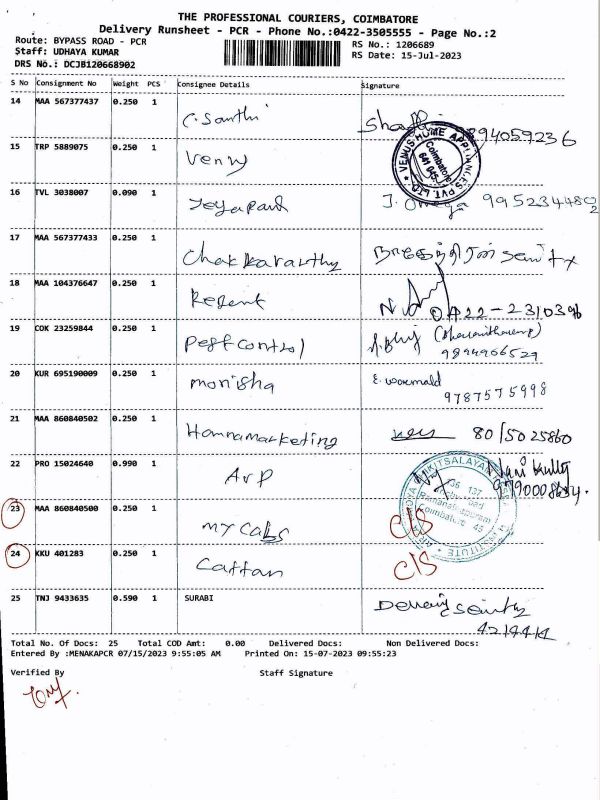 THE PROFESSIONAL COURIERS, COIMBATORE
Delivery Runsheet - PCR - Phone No.:0422-3505555 - Page No.:2
Route: BYPASS ROAD - PCR RS No.: 1206689
Staff: UDHAYA KUMAR RS Date: 15-Jul-2023
DRS No.: DCJB120668902
S No Consignment No Weight PCS Consignee Details Signature
14 MAA 567377437 0.250 1 C. Santhi 9894059236
VENUS HOME APPLIANCES PVT. LTD.
Coimbatore
641 045
15 TRP 5889075 0.250 1 Venny
16 TVL 3038007 0.090 1 Jeyapark J. Omega 9952344802
17 MAA 567377433 0.250 1 Chakkaravarthy
18 MAA 104376647 0.250 1 Regent 0422-2310396
19 COK 23259844 0.250 1 Pestcontrol
9894966529
20 KUR 695190009 0.250 1 monisha
9787575998
21 MAA 860840502 0.250 1 Hannamarketing 80/5025860
22 PRO 15024640 0.990 1 AVP Nani Kutty
23 MAA 860840500 0.250 1 my cabs C/S
Ramanathapuram
Coimbatore 45
INSTITUTE
24 KKU 401283 0.250 1 Cattan C/S
25 TNJ 9433635 0.590 1 SURABI
4214414
Total No. Of Docs: 25 Total COD Amt: 0.00 Delivered Docs: Non Delivered Docs:
Entered By :MENAKAPCR 07/15/2023 9:55:05 AM Printed On: 15-07-2023 09:55:23
Verified By Staff Signature